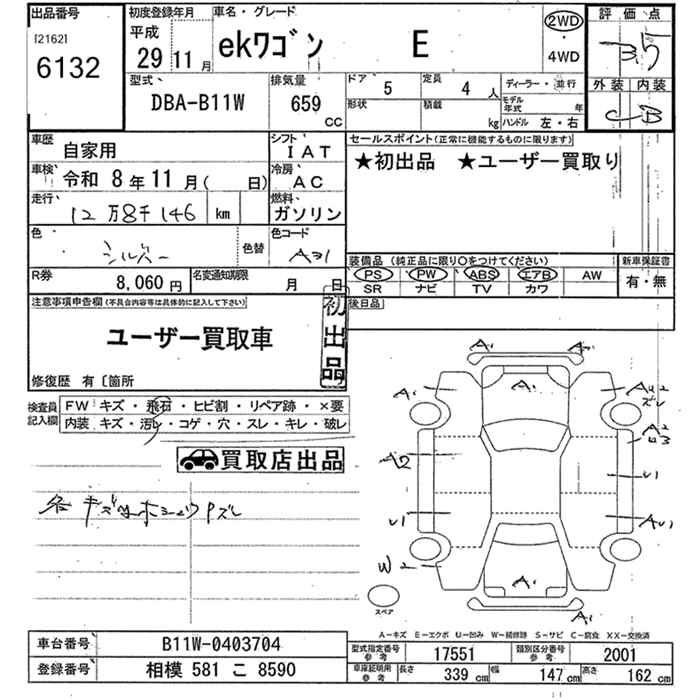 出品番号
[2162]
6132
初度登録年月
平成
29年11月
車名・グレード
ekワゴン E
2WD
・
4WD
評価点
3.5
外装 内装
C B
型式
DBA-B11W
排気量
659
CC
ドア 5
定員 4 人
形状
積載 kg
ディーラー・並行
モデル年式 年
ハンドル 左・右
車歴 自家用
シフト IAT
車検 令和 8年11月( 日)
冷房 AC
走行 12万8千146 km
燃料 ガソリン
色 シルバー
色替
色コード A31
R券 8,060円
名変通知期限 月 日
セールスポイント(正常に機能するものに限ります)
★初出品 ★ユーザー買取り
装備品 (純正品に限り○をつけてください)
新車保証書
PS PW ABS エアB AW
SR ナビ TV カワ
有・無
注意事項申告欄(不具合内容等は具体的に記入して下さい)
ユーザー買取車
初出品
修復歴 有〔箇所
後日品
検査員記入欄
FW キズ・飛石・ヒビ割・リペア跡・×要
内装 キズ・汚レ・コゲ・穴・スレ・キレ・破レ
買取店出品
A1
A1
A1
A1
AU2
ズレ
A2
A2
U1
U1
AU1
W2
A1
A1
スペア
A-キズ E-エクボ U-凹み W-補修跡 S-サビ C-腐食 XX-交換済
車台番号 B11W-0403704
登録番号 相模 581 こ 8590
型式指定番号参考 17551
類別区分番号参考 2001
車庫証明用参考
長さ 339 cm
幅 147 cm
高さ 162 cm